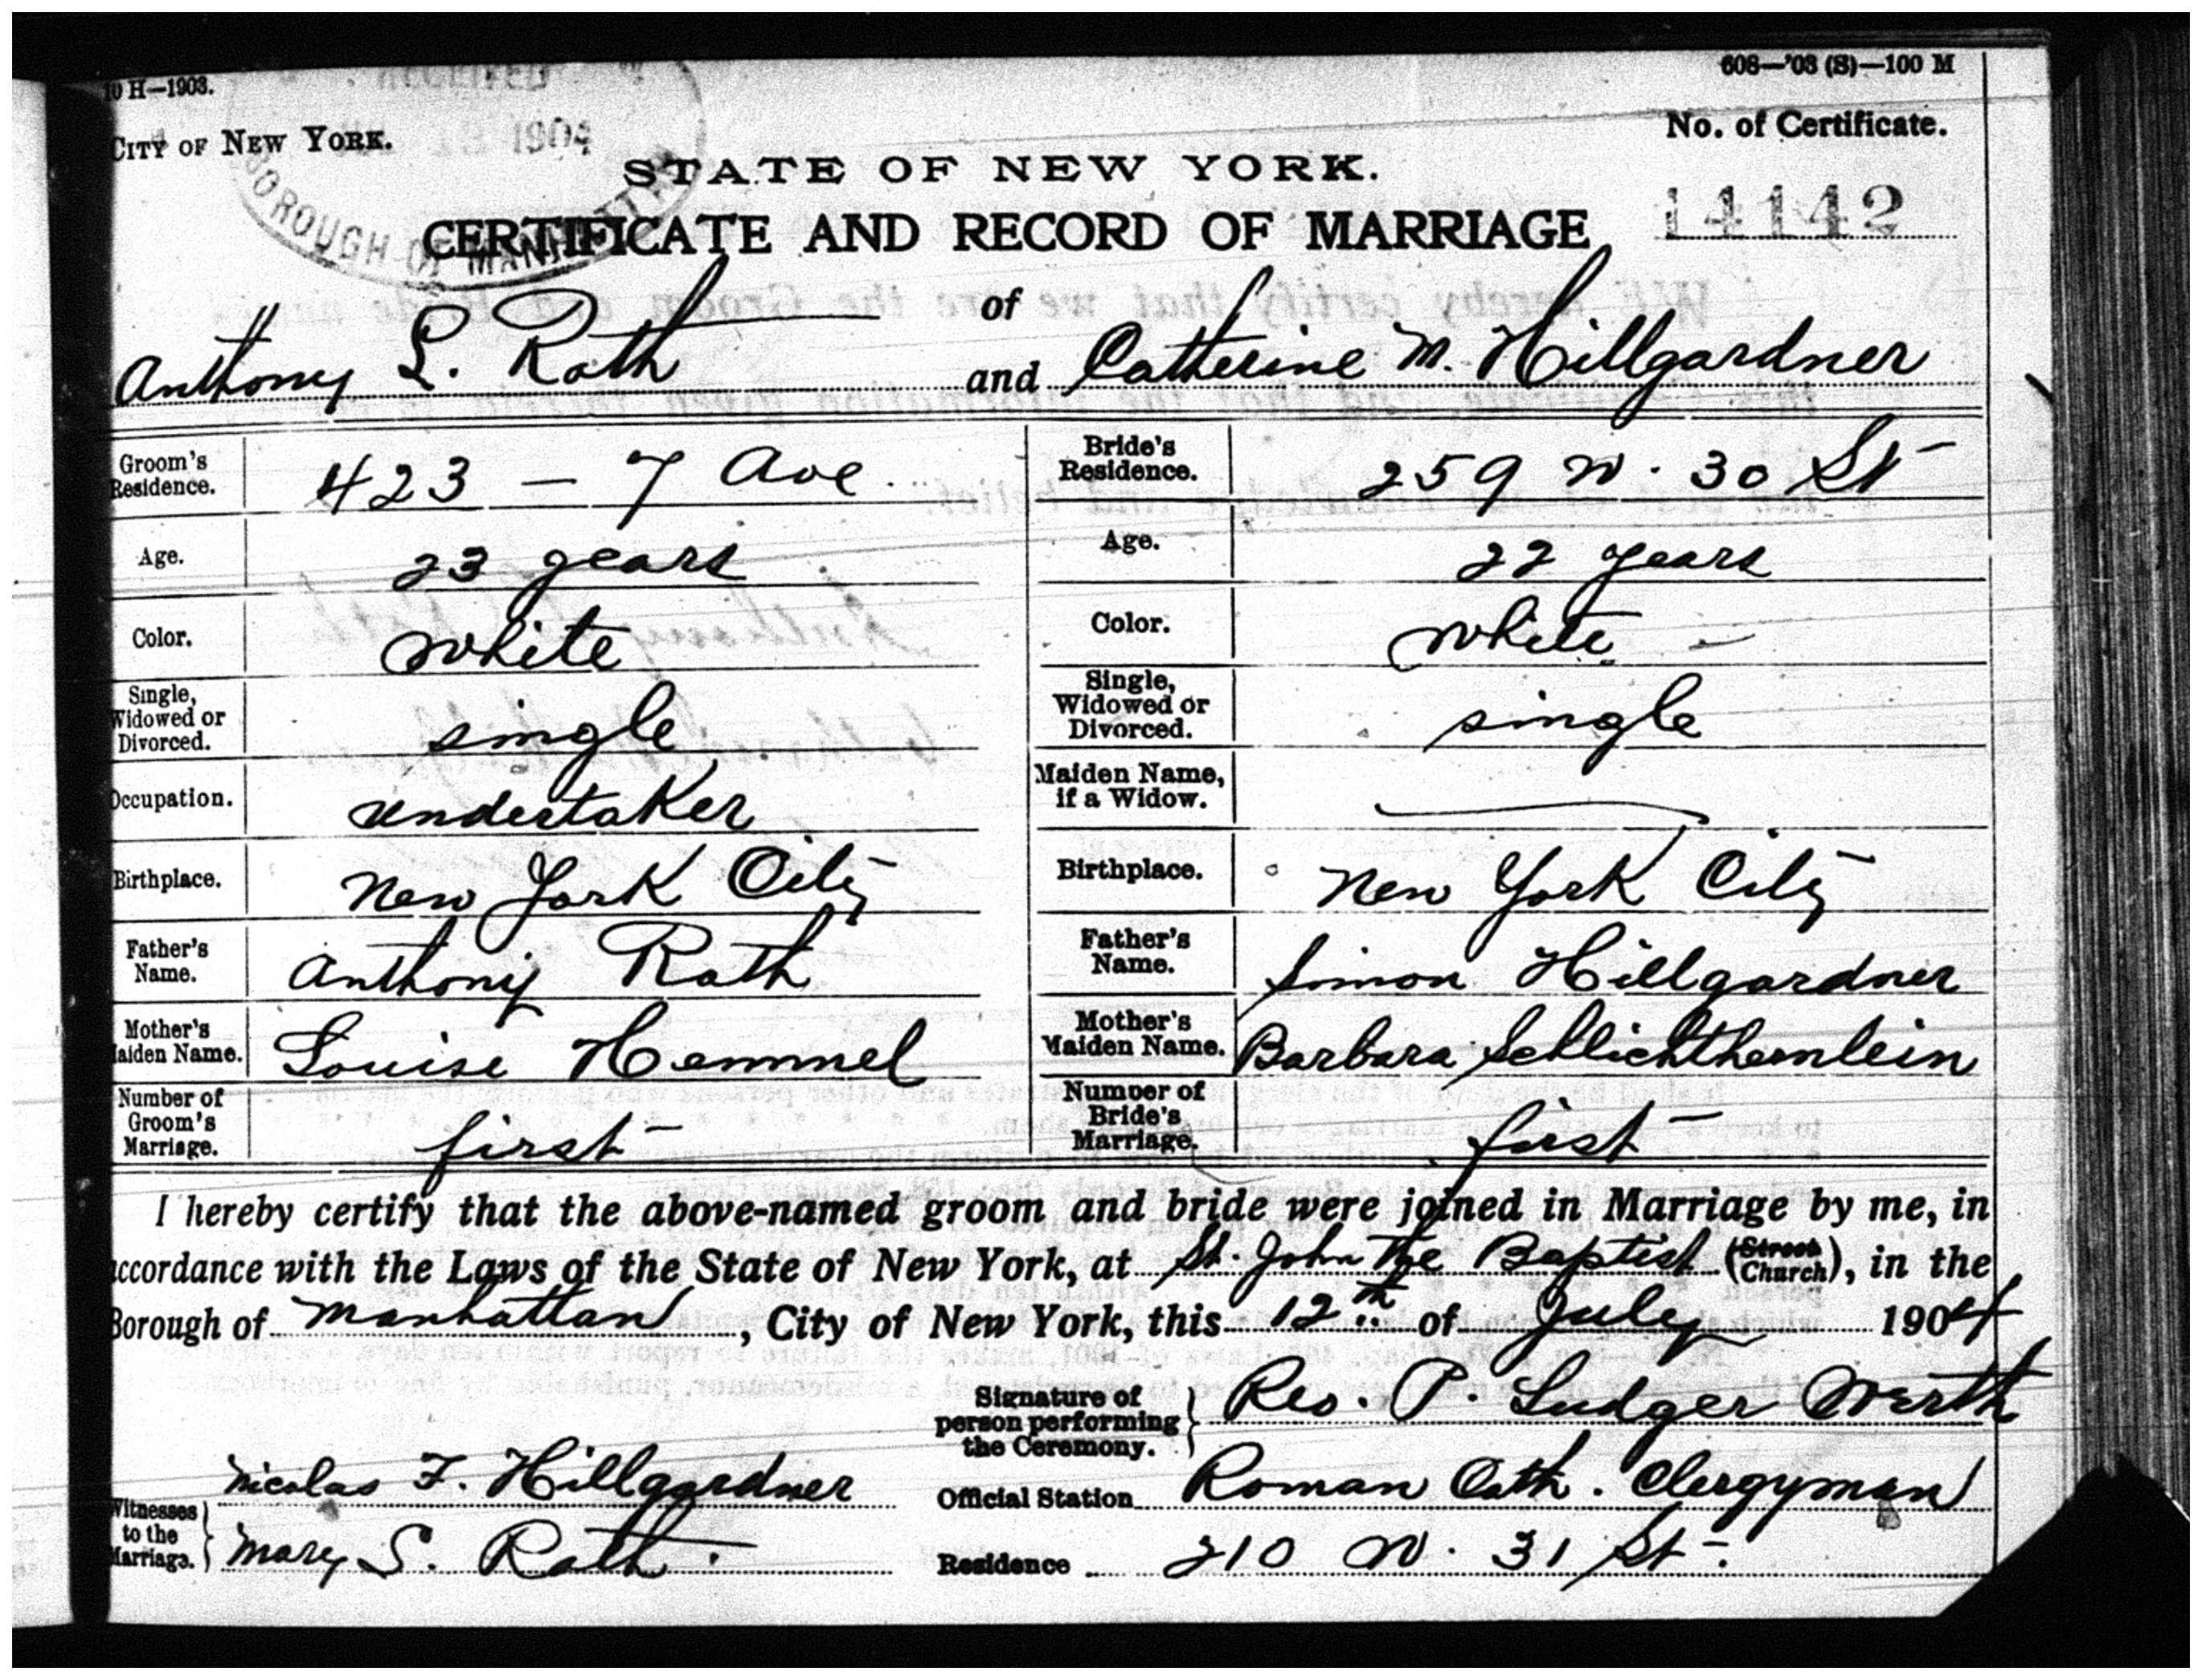 10 H—1903.
608—'03 (S)—100 M
1904
BOROUGH OF MANHATTAN
CITY OF NEW YORK.
No. of Certificate.
STATE OF NEW YORK.
14142
CERTIFICATE AND RECORD OF MARRIAGE
of
Anthony L. Roth and Catherine M. Hillgardner
Groom's Residence. 423 — 7 Ave. Bride's Residence. 259 W. 30 St
Age. 23 years Age. 22 years
Color. White Color. White
Single, Widowed or Divorced. single Single, Widowed or Divorced. single
Occupation. Undertaker Maiden Name, if a Widow.
Birthplace. New York City Birthplace. New York City
Father's Name. Anthony Roth Father's Name. Simon Hillgardner
Mother's Maiden Name. Louise Hemmel Mother's Maiden Name. Barbara Schlichthernlein
Number of Groom's Marriage. first Number of Bride's Marriage. first
I hereby certify that the above-named groom and bride were joined in Marriage by me, in
accordance with the Laws of the State of New York, at St. John The Baptist (Street Church), in the
Borough of Manhattan, City of New York, this 12th of July 1904
Signature of person performing the Ceremony. Rev. P. Ludger Werth
Witnesses to the Marriage. Nicolas F. Hillgardner
Official Station Roman Cath. Clergyman
Mary S. Roth.
Residence 210 W. 31 St.